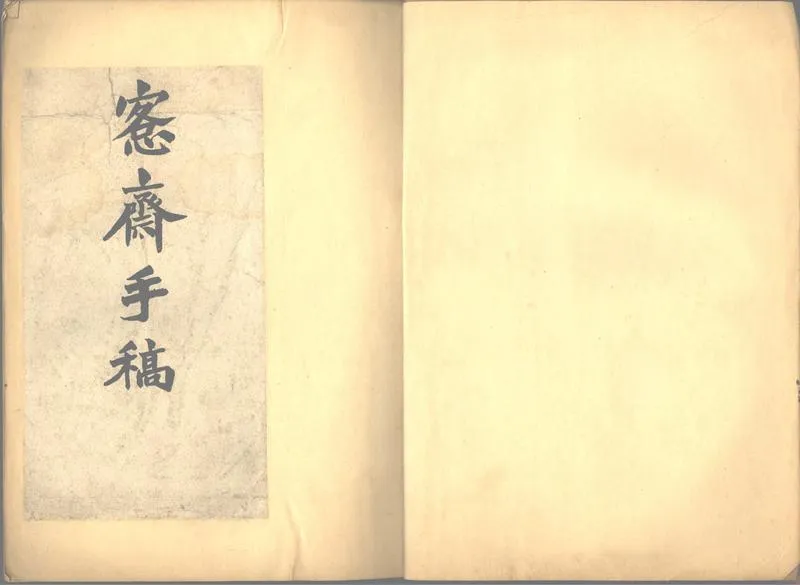 愙齋手稿